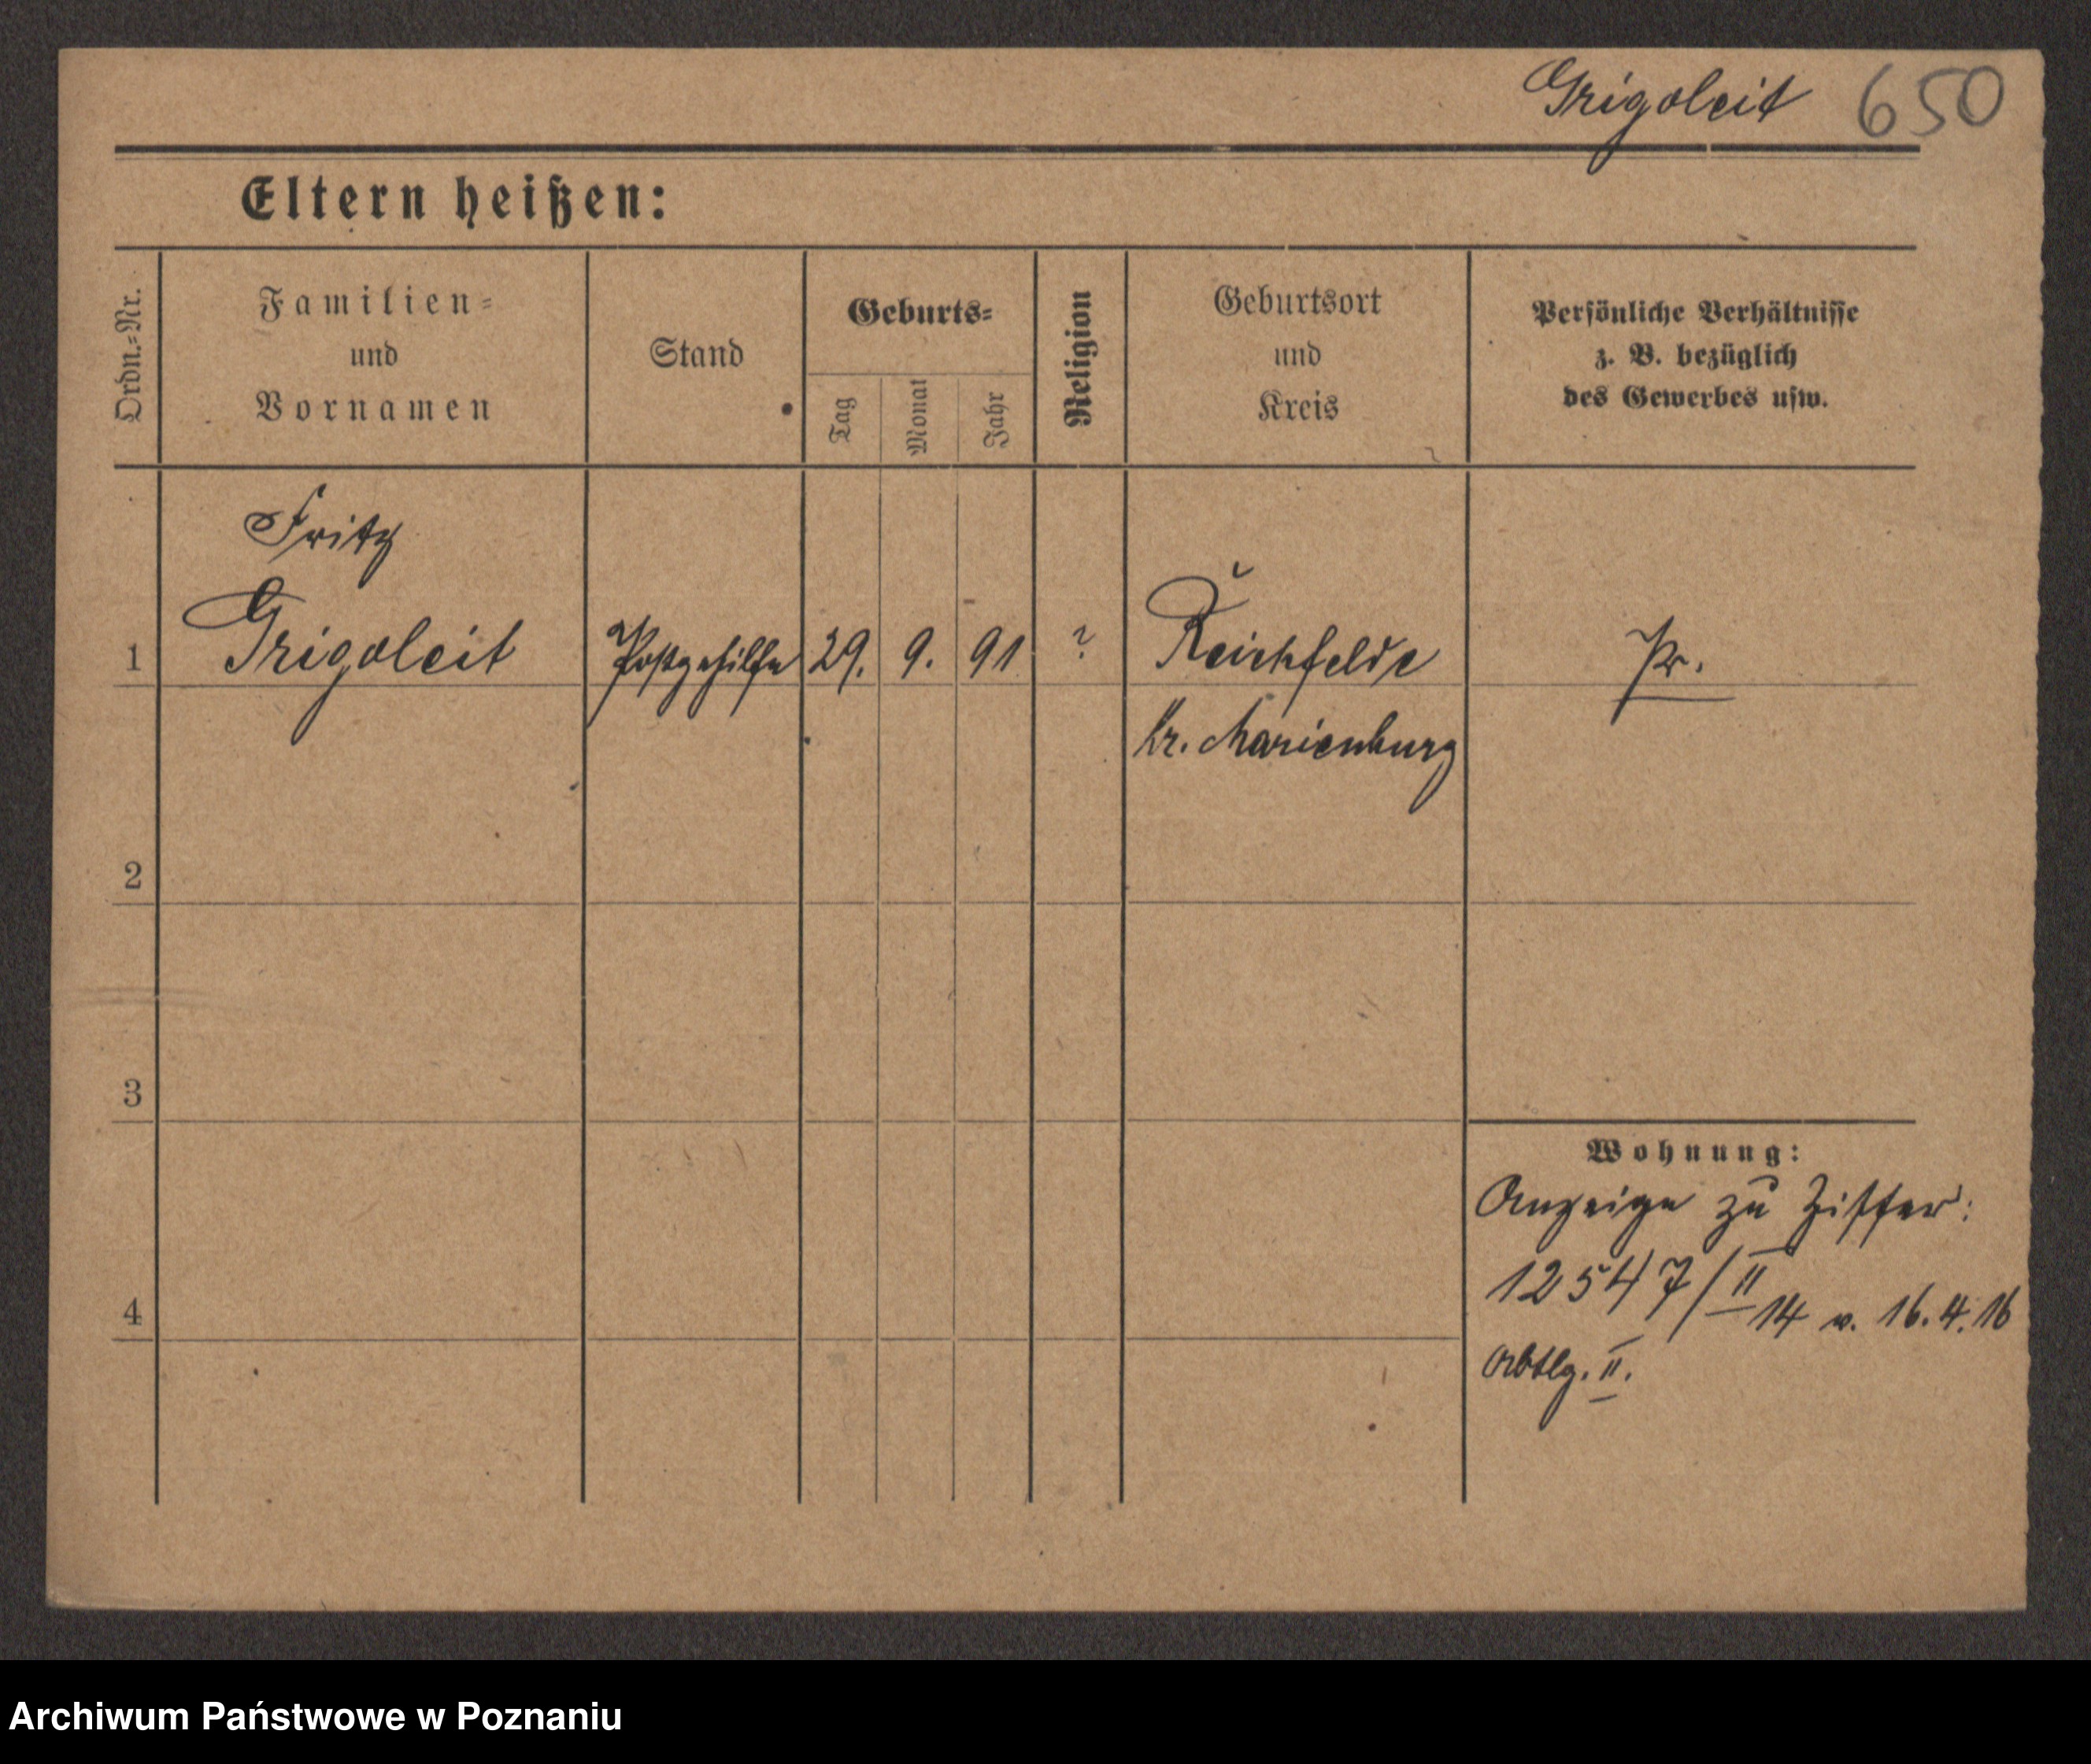 Grigoleit 650
Eltern heißen:
Ordn.-Nr.
Familien-
und
Vornamen
Stand
Geburts-
Tag
Monat
Jahr
Religion
Geburtsort
und
Kreis
Persönliche Verhältnisse
z. B. bezüglich
des Gewerbes usw.
Fritz
1 Grigoleit Postgehilfe 29. 9. 91 ? Reichfelde Pr.
Kr. Marienburg
2
3
Wohnung:
Anzeige zu Ziffer:
12547/II 14 v. 16.4.16
4
Abtlg. II.
Archiwum Państwowe w Poznaniu